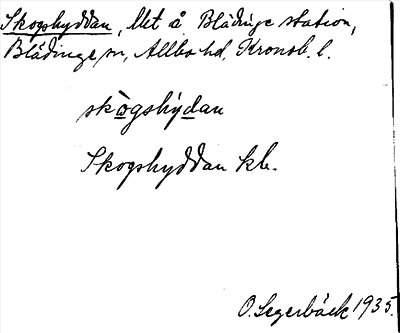 Skogshyddan, lht å Blädinge station,
Blädinge sn, Allbo hd, Kronob. l.
skògshýdan
Skogshyddan kb.
O. Segerbäck 1935.